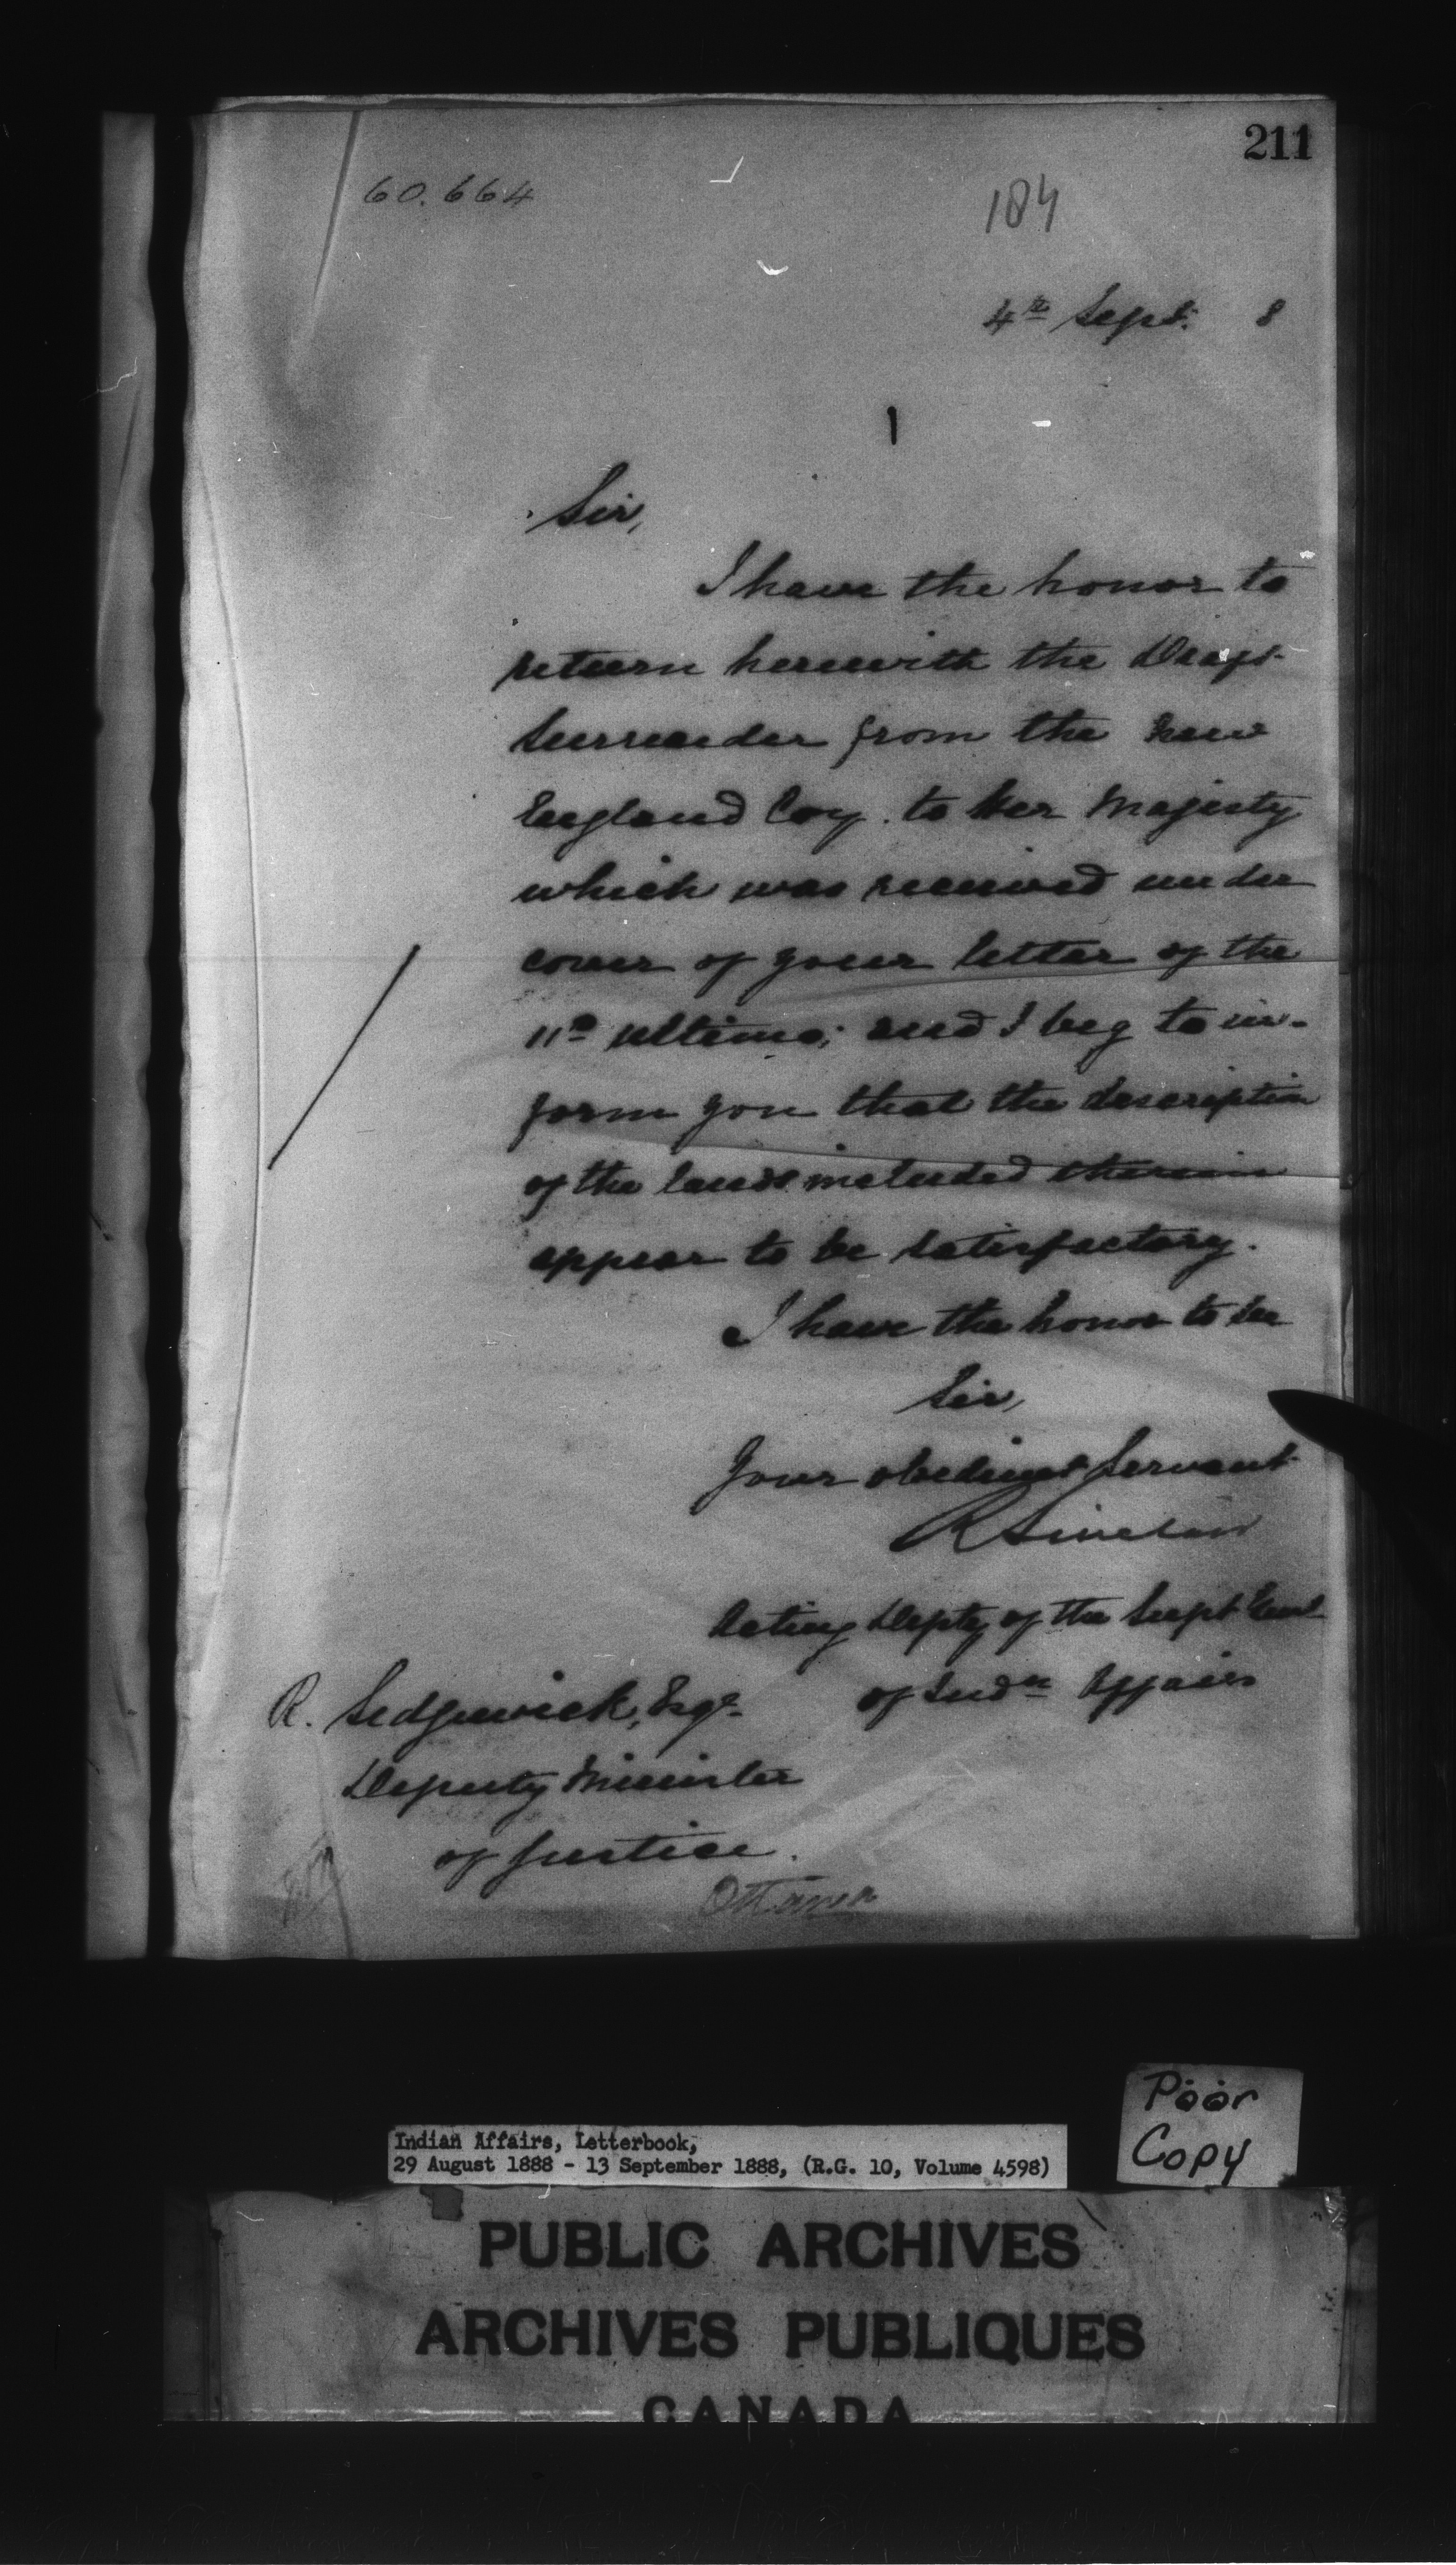 211
60.664
184
4th Sept. 8
Sir,
I have the honor to
return herewith the Draft
Surrender from the New
England Coy. to Her Majesty
which was received under
cover of your letter of the
11th ultimo; and I beg to in-
form you that the description
of the lands included therein
appear to be satisfactory.
I have the honor to be
Sir,
Your obedient Servant
R Sinclair
Acting Depty of the Supt Genl
of Indn Affairs
R. Sedgewick, Esqr.
Deputy Minister
of Justice.
Ottawa
Poor
Copy
Indian Affairs, Letterbook,
29 August 1888 - 13 September 1888, (R.G. 10, Volume 4598)
PUBLIC ARCHIVES
ARCHIVES PUBLIQUES
CANADA